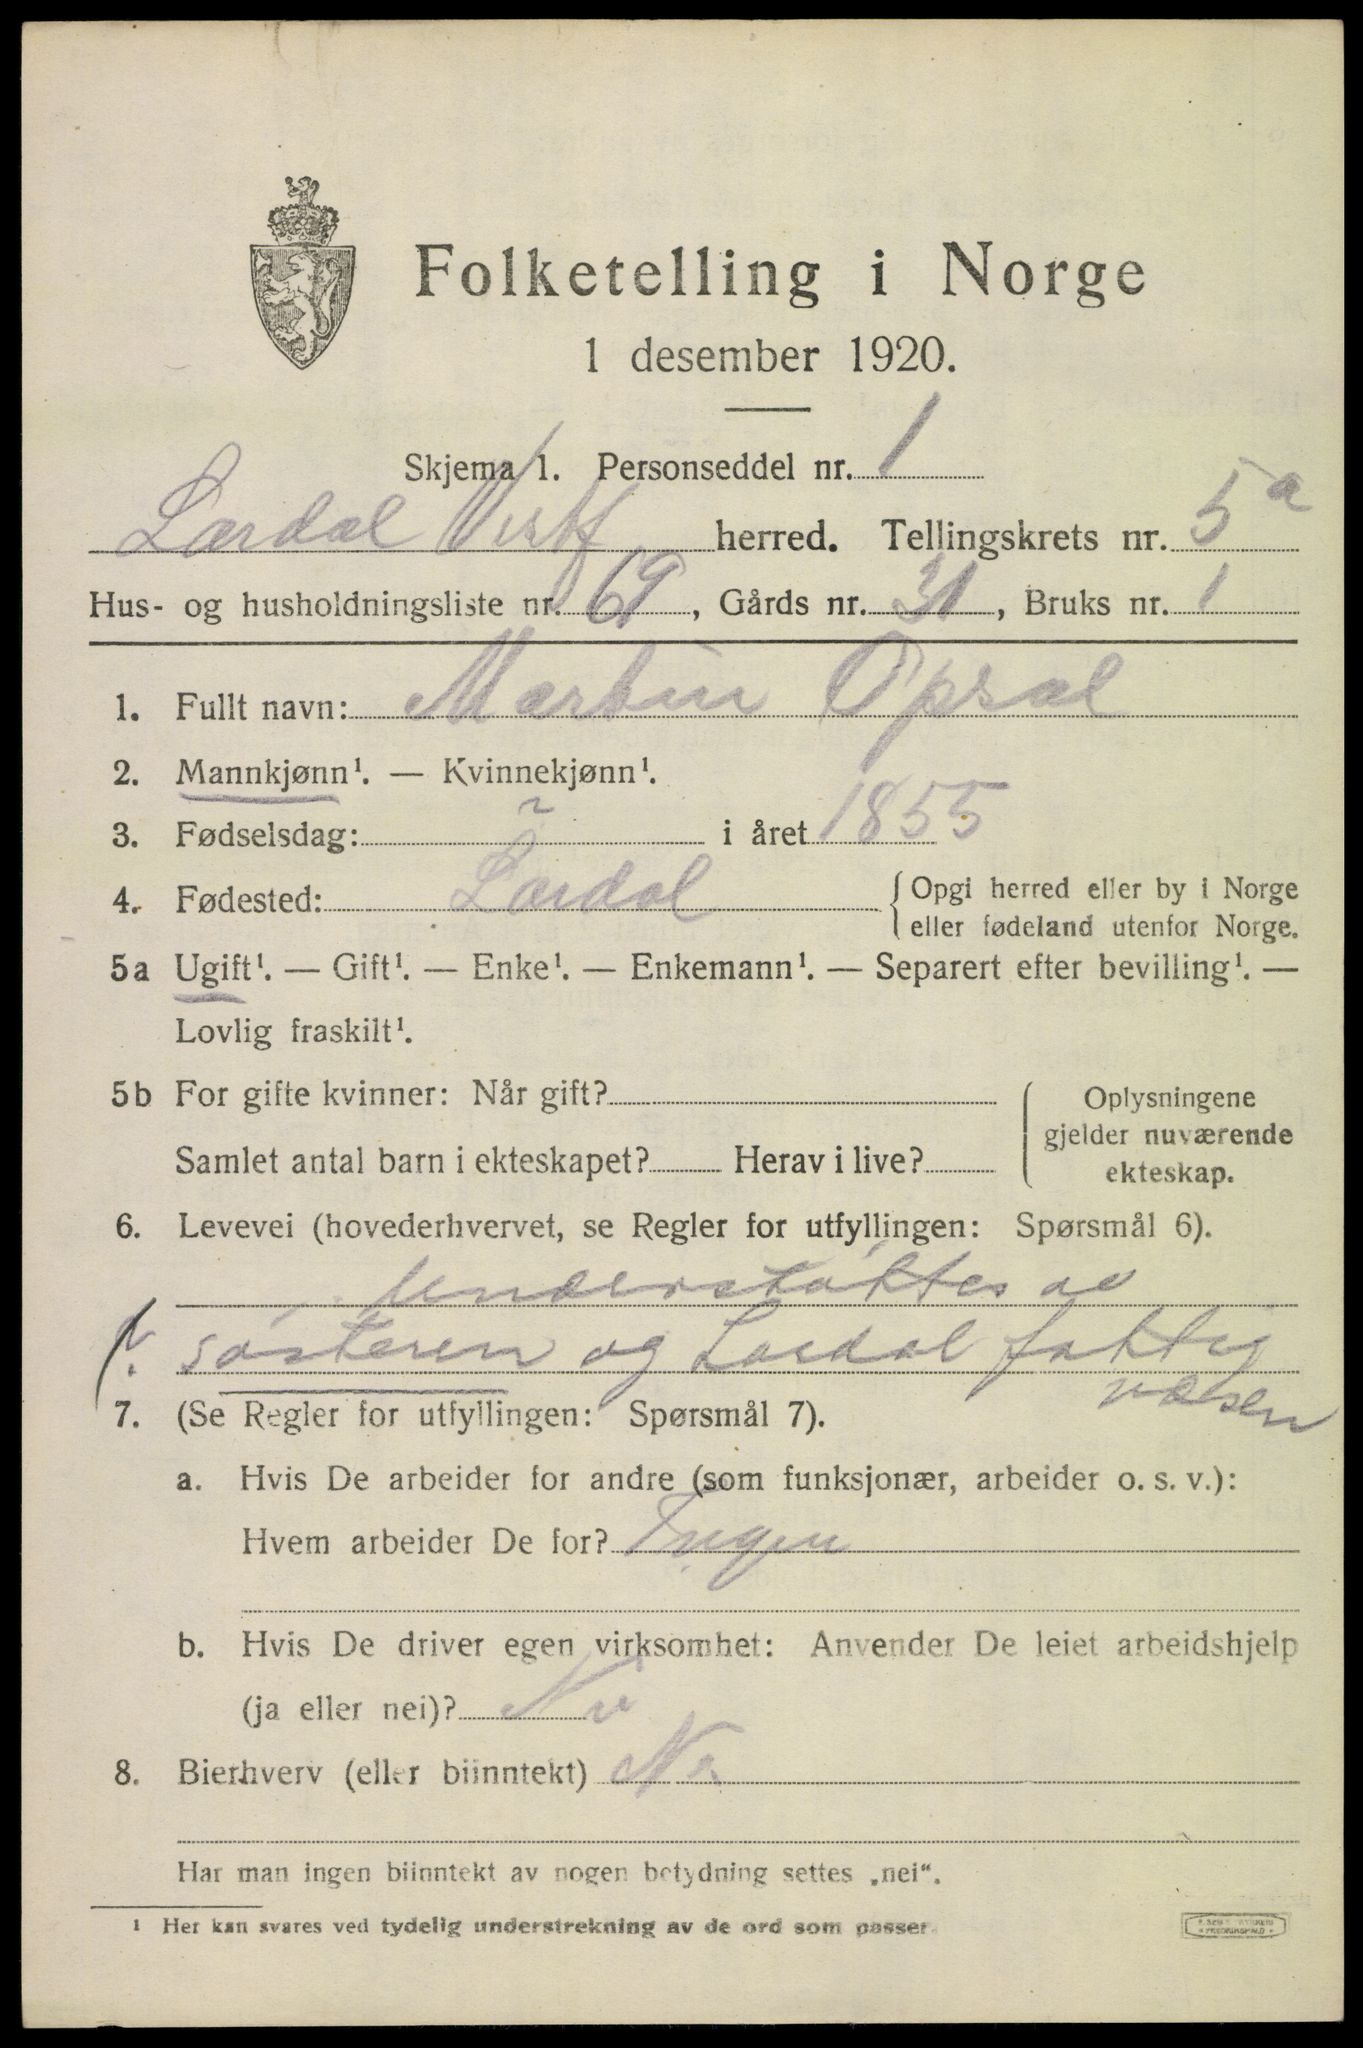 Folketelling i Norge
1 desember 1920.
Skjema 1. Personseddel nr. 1
Lardal Vestf herred. Tellingskrets nr. 5a
Hus- og husholdningsliste nr. 69, Gårds nr. 31, Bruks nr. 1
1. Fullt navn: Martin Opsal
2. Mannkjønn¹. — Kvinnekjønn¹.
3. Fødselsdag: ~ i året 1855
4. Fødested: Lardal { Opgi herred eller by i Norge
eller fødeland utenfor Norge.
5a Ugift¹. — Gift¹. — Enke¹. — Enkemann¹. — Separert efter bevilling¹. —
Lovlig fraskilt¹.
5b For gifte kvinner: Når gift?
Samlet antal barn i ekteskapet? Herav i live?
Oplysningene
gjelder nuværende
ekteskap.
6. Levevei (hovederhvervet, se Regler for utfyllingen: Spørsmål 6).
Understøttes av
søsteren og Lardal fattig
væsen
7. (Se Regler for utfyllingen: Spørsmål 7).
a. Hvis De arbeider for andre (som funksjonær, arbeider o. s. v.):
Hvem arbeider De for? Ingen
b. Hvis De driver egen virksomhet: Anvender De leiet arbeidshjelp
(ja eller nei)? Nei
8. Bierhverv (eller biinntekt) Nei
Har man ingen biinntekt av nogen betydning settes „nei“.
¹ Her kan svares ved tydelig understrekning av de ord som passer.